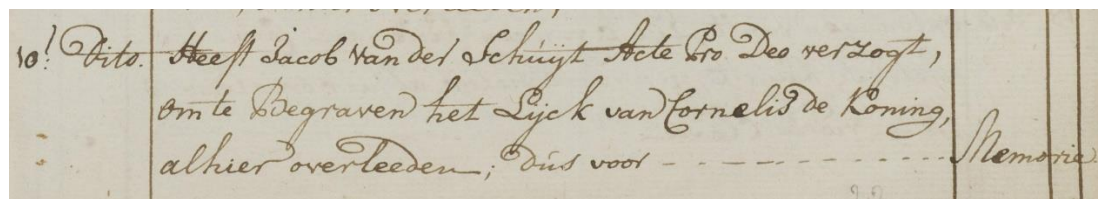 10.' Dito. Heeft Jacob van der Schuÿt Acte Pro Deo verzogt,
om te Begraven het Lijck van Cornelis de Koning,
alhier overleeden; dus voor - - - - - - - - - - - - Memorie.